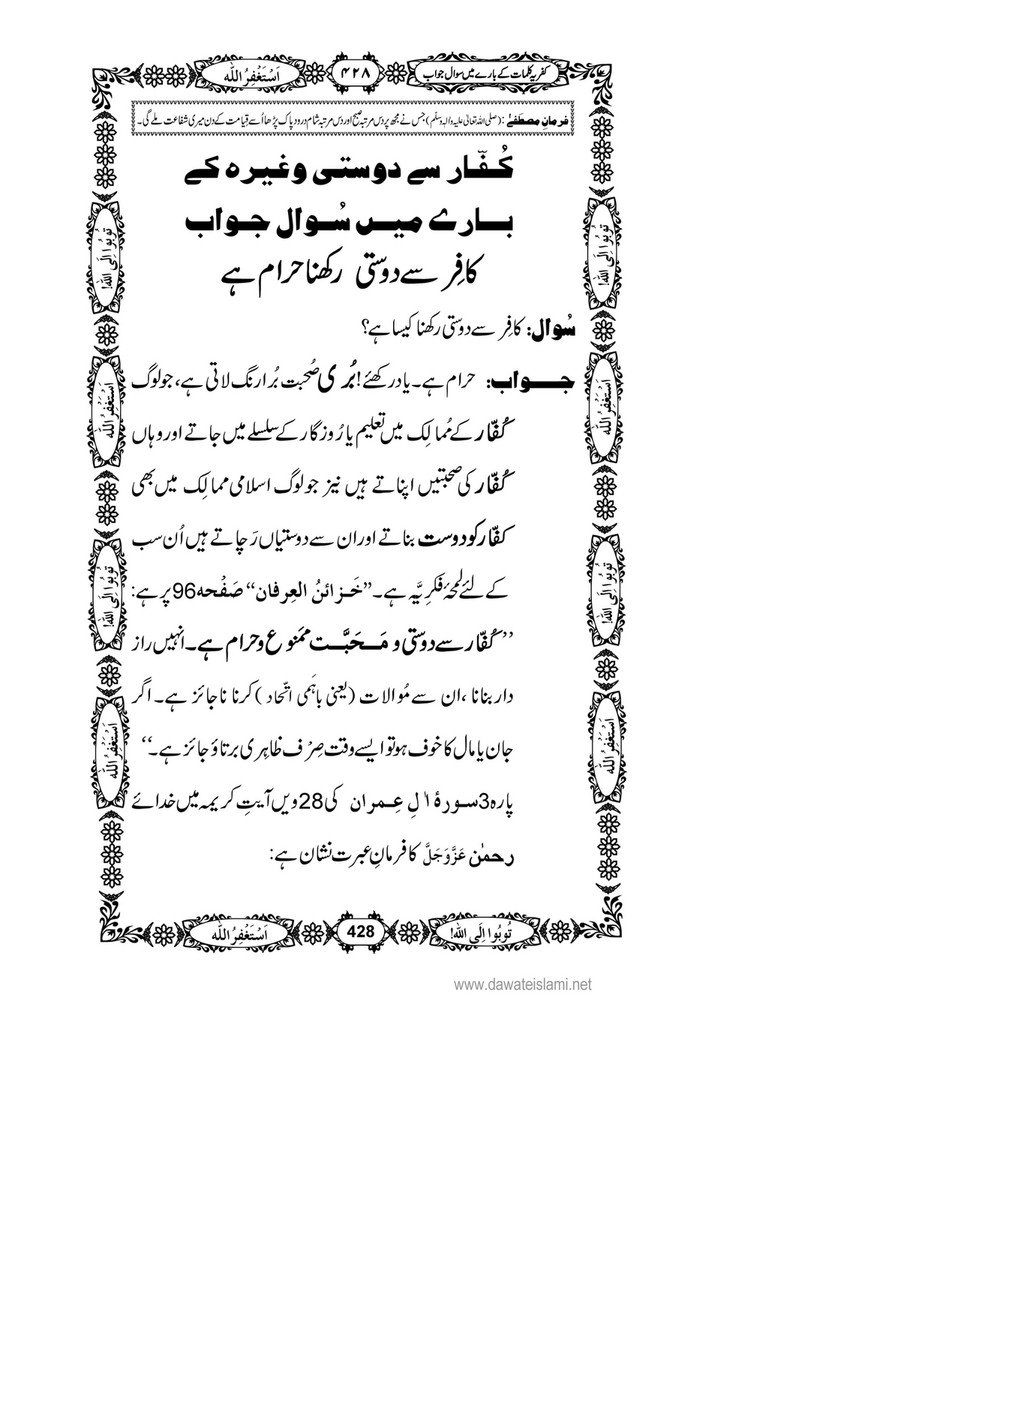 کفریہ کلمات کے بارے میں سوال جواب ۴۲۸ اَسْتَغْفِرُاللّٰه
فرمانِ مصطفےٰ : (صلی اللہ تعالیٰ علیہ والہ وسلّم) جس نے مجھ پر دس مرتبہ صبح اور دس مرتبہ شام درود پاک پڑھا اُسے قِیامت کے دن میری شفاعت ملے گی۔
کُفّار سے دوستی وغیرہ کے
بارے میں سُوال جواب
کافِر سے دوستی رکھنا حرام ہے
سُوال: کافِر سے دوستی رکھنا کیسا ہے؟
جواب: حرام ہے۔ یاد رکھئے! بُری صُحبت بُرا رنگ لاتی ہے، جو لوگ
کفّار کے مُمالِک میں تعلیم یا رُوزگار کے سلسلے میں جاتے اور وہاں
کُفّار کی صحبتیں اپناتے ہیں نیز جو لوگ اسلامی ممالِک میں بھی
کفّار کو دوست بناتے اور ان سے دوستیاں رَچاتے ہیں اُن سب
کے لئے لمحۂ فکرِیَّہ ہے۔ ’’خَزائنُ العِرفان‘‘ صَفْحہ 96 پر ہے:
’’کُفّار سے دوستی و مَحَبَّت ممنوع و حرام ہے۔ انہیں راز
دار بنانا ،ان سے مُوالات (یعنی باہَمی اتّحاد) کرنا ناجائز ہے۔ اگر
جان یا مال کا خوف ہو تو ایسے وقت صِرْف ظاہِری برتاؤ جائز ہے۔‘‘
پارہ 3 سورۂ اٰلِ عِمران کی 28 ویں آیتِ کریمہ میں خدائے
رحمٰن عَزَّوَجَلَّ کا فرمانِ عبرت نشان ہے:
تُوبُوا اِلَی اللّٰه! 428 اَسْتَغْفِرُاللّٰه
تُوبُوا اِلَی اللّٰه!
اَسْتَغْفِرُاللّٰه
تُوبُوا اِلَی اللّٰه!
اَسْتَغْفِرُاللّٰه
تُوبُوا اِلَی اللّٰه!
اَسْتَغْفِرُاللّٰه
تُوبُوا اِلَی اللّٰه!
اَسْتَغْفِرُاللّٰه
www.dawateislami.net